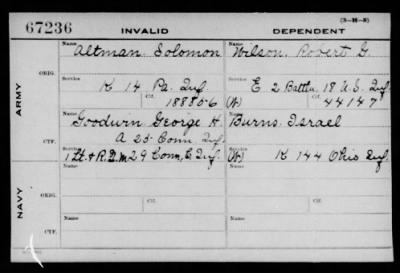 67236
INVALID
DEPENDENT
(3—16—8)
ARMY
ORIG.
Name
Altman Solomon
Name
Wilson, Robert G.
Service
K 14 Pa. Inf
Service
E 2 Battln 18 U.S. Inf
Ctf.
188806
(W)
Ctf.
44147
CTF.
Name
Goodwin George H.
Name
Burns Israel
A 25 Conn Inf.
Service
1 Lt. & R.Q.M 29 Conn. C. Inf.
Service
(W) K 144 Ohio Inf.
NAVY
ORIG.
Name
Name
Service
Ctf.
Service
Ctf.
CTF.
Name
Name